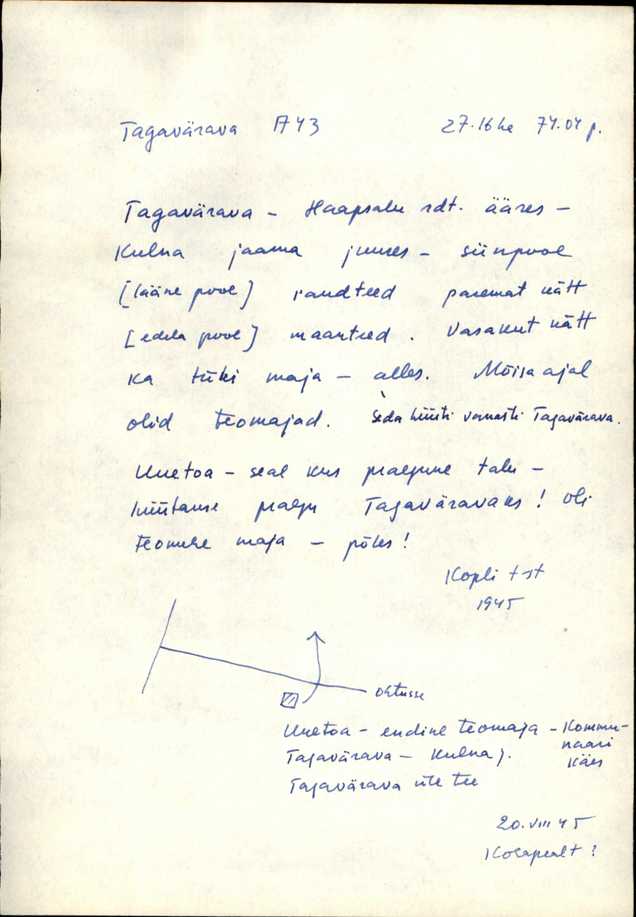 Tagavärava A43 27.16 ha 74.04 p.
Tagavärava – Haapsalu rdt. ääres –
Kulna jaama juures – siinpool
[lääne pool] raudteed paremat kätt
[edela pool] maanteed. Vasakut kätt
ka tüki maja – alles. Mõisa ajal
olid teomajad. Seda hüüti vanasti Tagavärava.
Uuetoa – seal kus praegune talu –
hüütakse praegu Tagaväravaks! oli
teomehe maja – põles!
Kopli t-st
1945
Ohtusse
Uuetoa – endine teomaja – Kommu-
naari
käes
Tagavärava – Kulna j.
Tagavärava üle tee
20.VIII 45